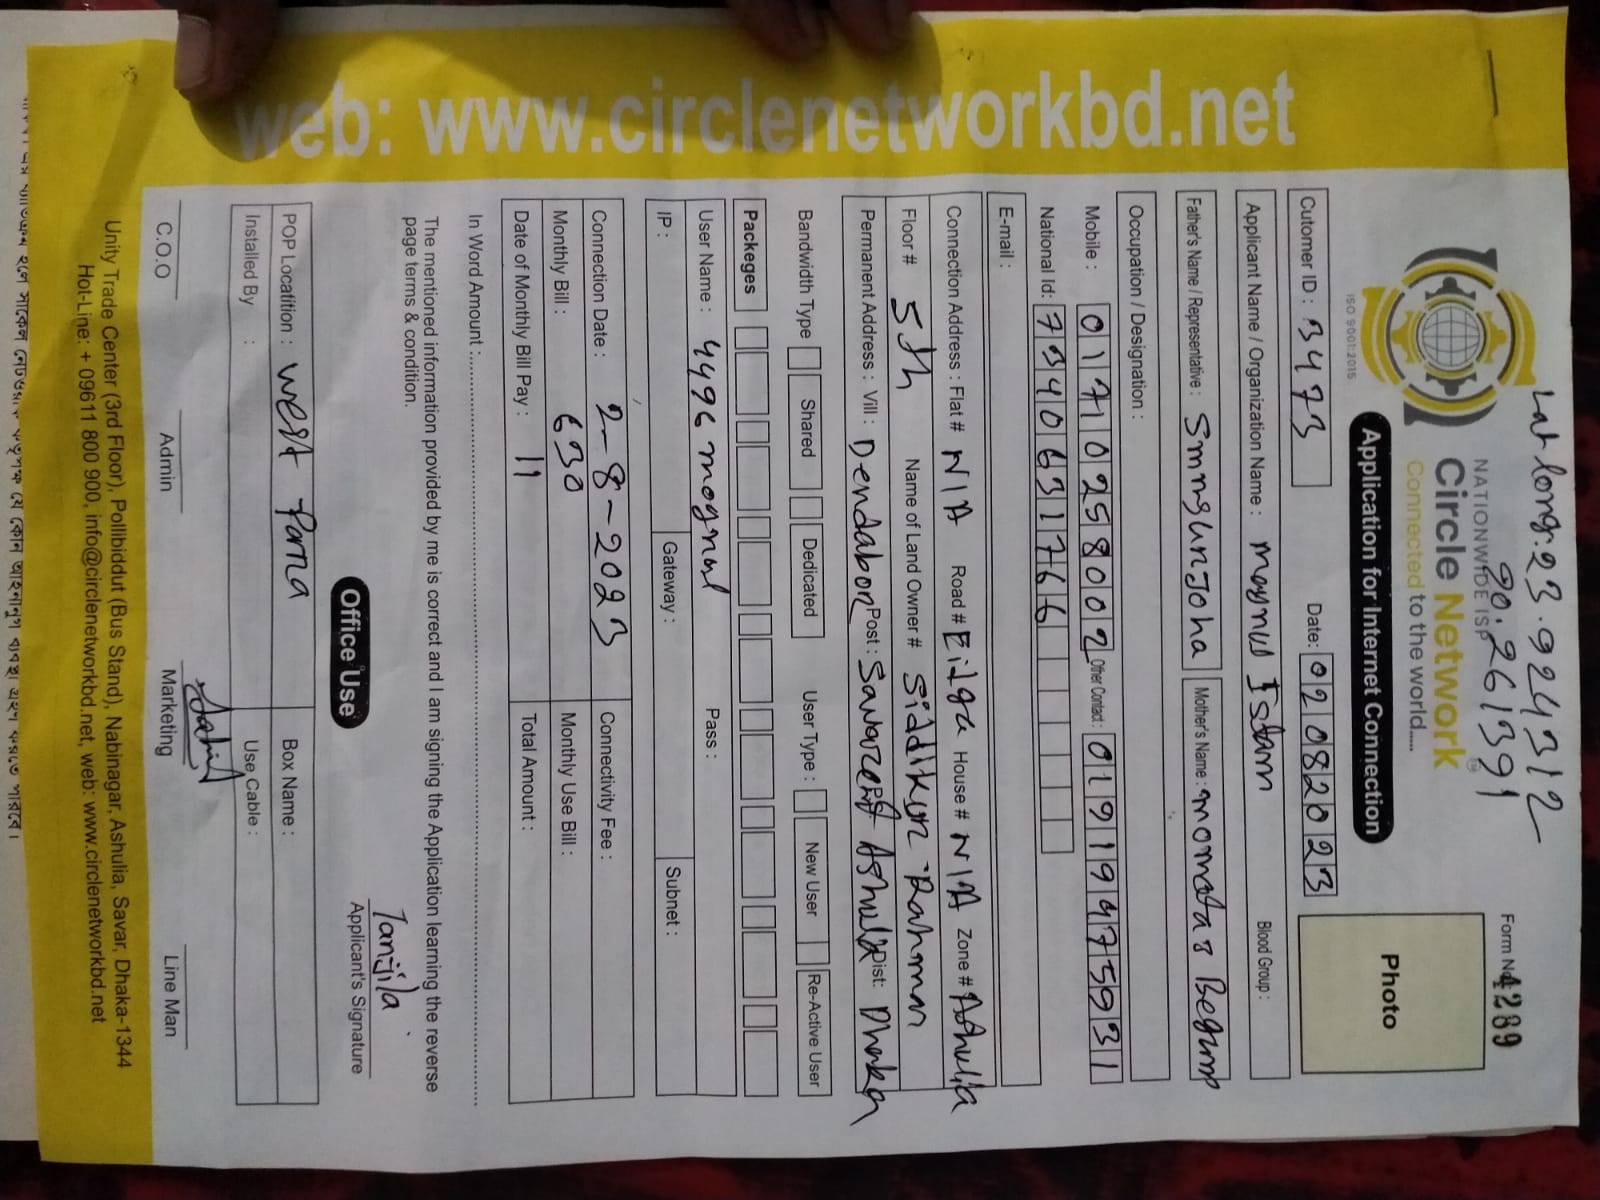 Lat long: 23.924312
90.261391
NATIONWIDE ISP
Circle Network
Connected to the world.....
ISO 9001:2015
Form No 4289
Application for Internet Connection
Photo
Cutomer ID : 3473 Date: 02082023
Applicant Name / Organization Name : Moynul Islam Blood Group :
Father's Name / Representative : Smmsunjoha Mother's Name : Momotaz Begump
Occupation / Designation :
Mobile : 01710258002 Other Contact : 01919475931
National Id: 7340631766
E-mail :
Connection Address : Flat # N/A Road # Eidga House # N/A Zone # Ashulia
Floor # 5th Name of Land Owner # Siddikur Rahman
Permanent Address : Vill : Dendabon Post : Savarcent P.S: Ashulia Dist: Dhaka
Bandwidth Type Shared Dedicated User Type : New User Re-Active User
Packeges
User Name : 4496moynul Pass :
IP : Gateway : Subnet :
Connection Date : 2-8-2023 Connectivity Fee :
Monthly Bill : 630 Monthly Use Bill :
Date of Monthly Bill Pay : 11 Total Amount :
In Word Amount :
The mentioned information provided by me is correct and I am signing the Application learning the reverse
page terms & condition.
Tanjila
Applicant's Signature
Office Use
POP Locatition : West Parra Box Name :
Installed By : Use Cable :
C.O.O Admin Marketing Line Man
Unity Trade Center (3rd Floor), Pollibiddut (Bus Stand), Nabinagar, Ashulia, Savar, Dhaka-1344
Hot-Line: + 09611 800 900, info@circlenetworkbd.net, web: www.circlenetworkbd.net
web: www.circlenetworkbd.net